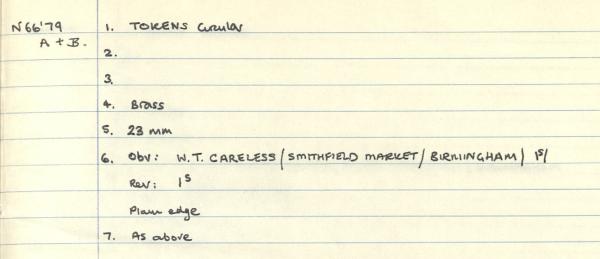 N66'79 1. TOKENS Circular
A + B. 2.
3.
4. Brass
5. 23 mm
6. Obv: W.T. CARELESS/SMITHFIELD MARKET/BIRMINGHAM/ 1S/
Rev: 1S
Plain edge
7. As above